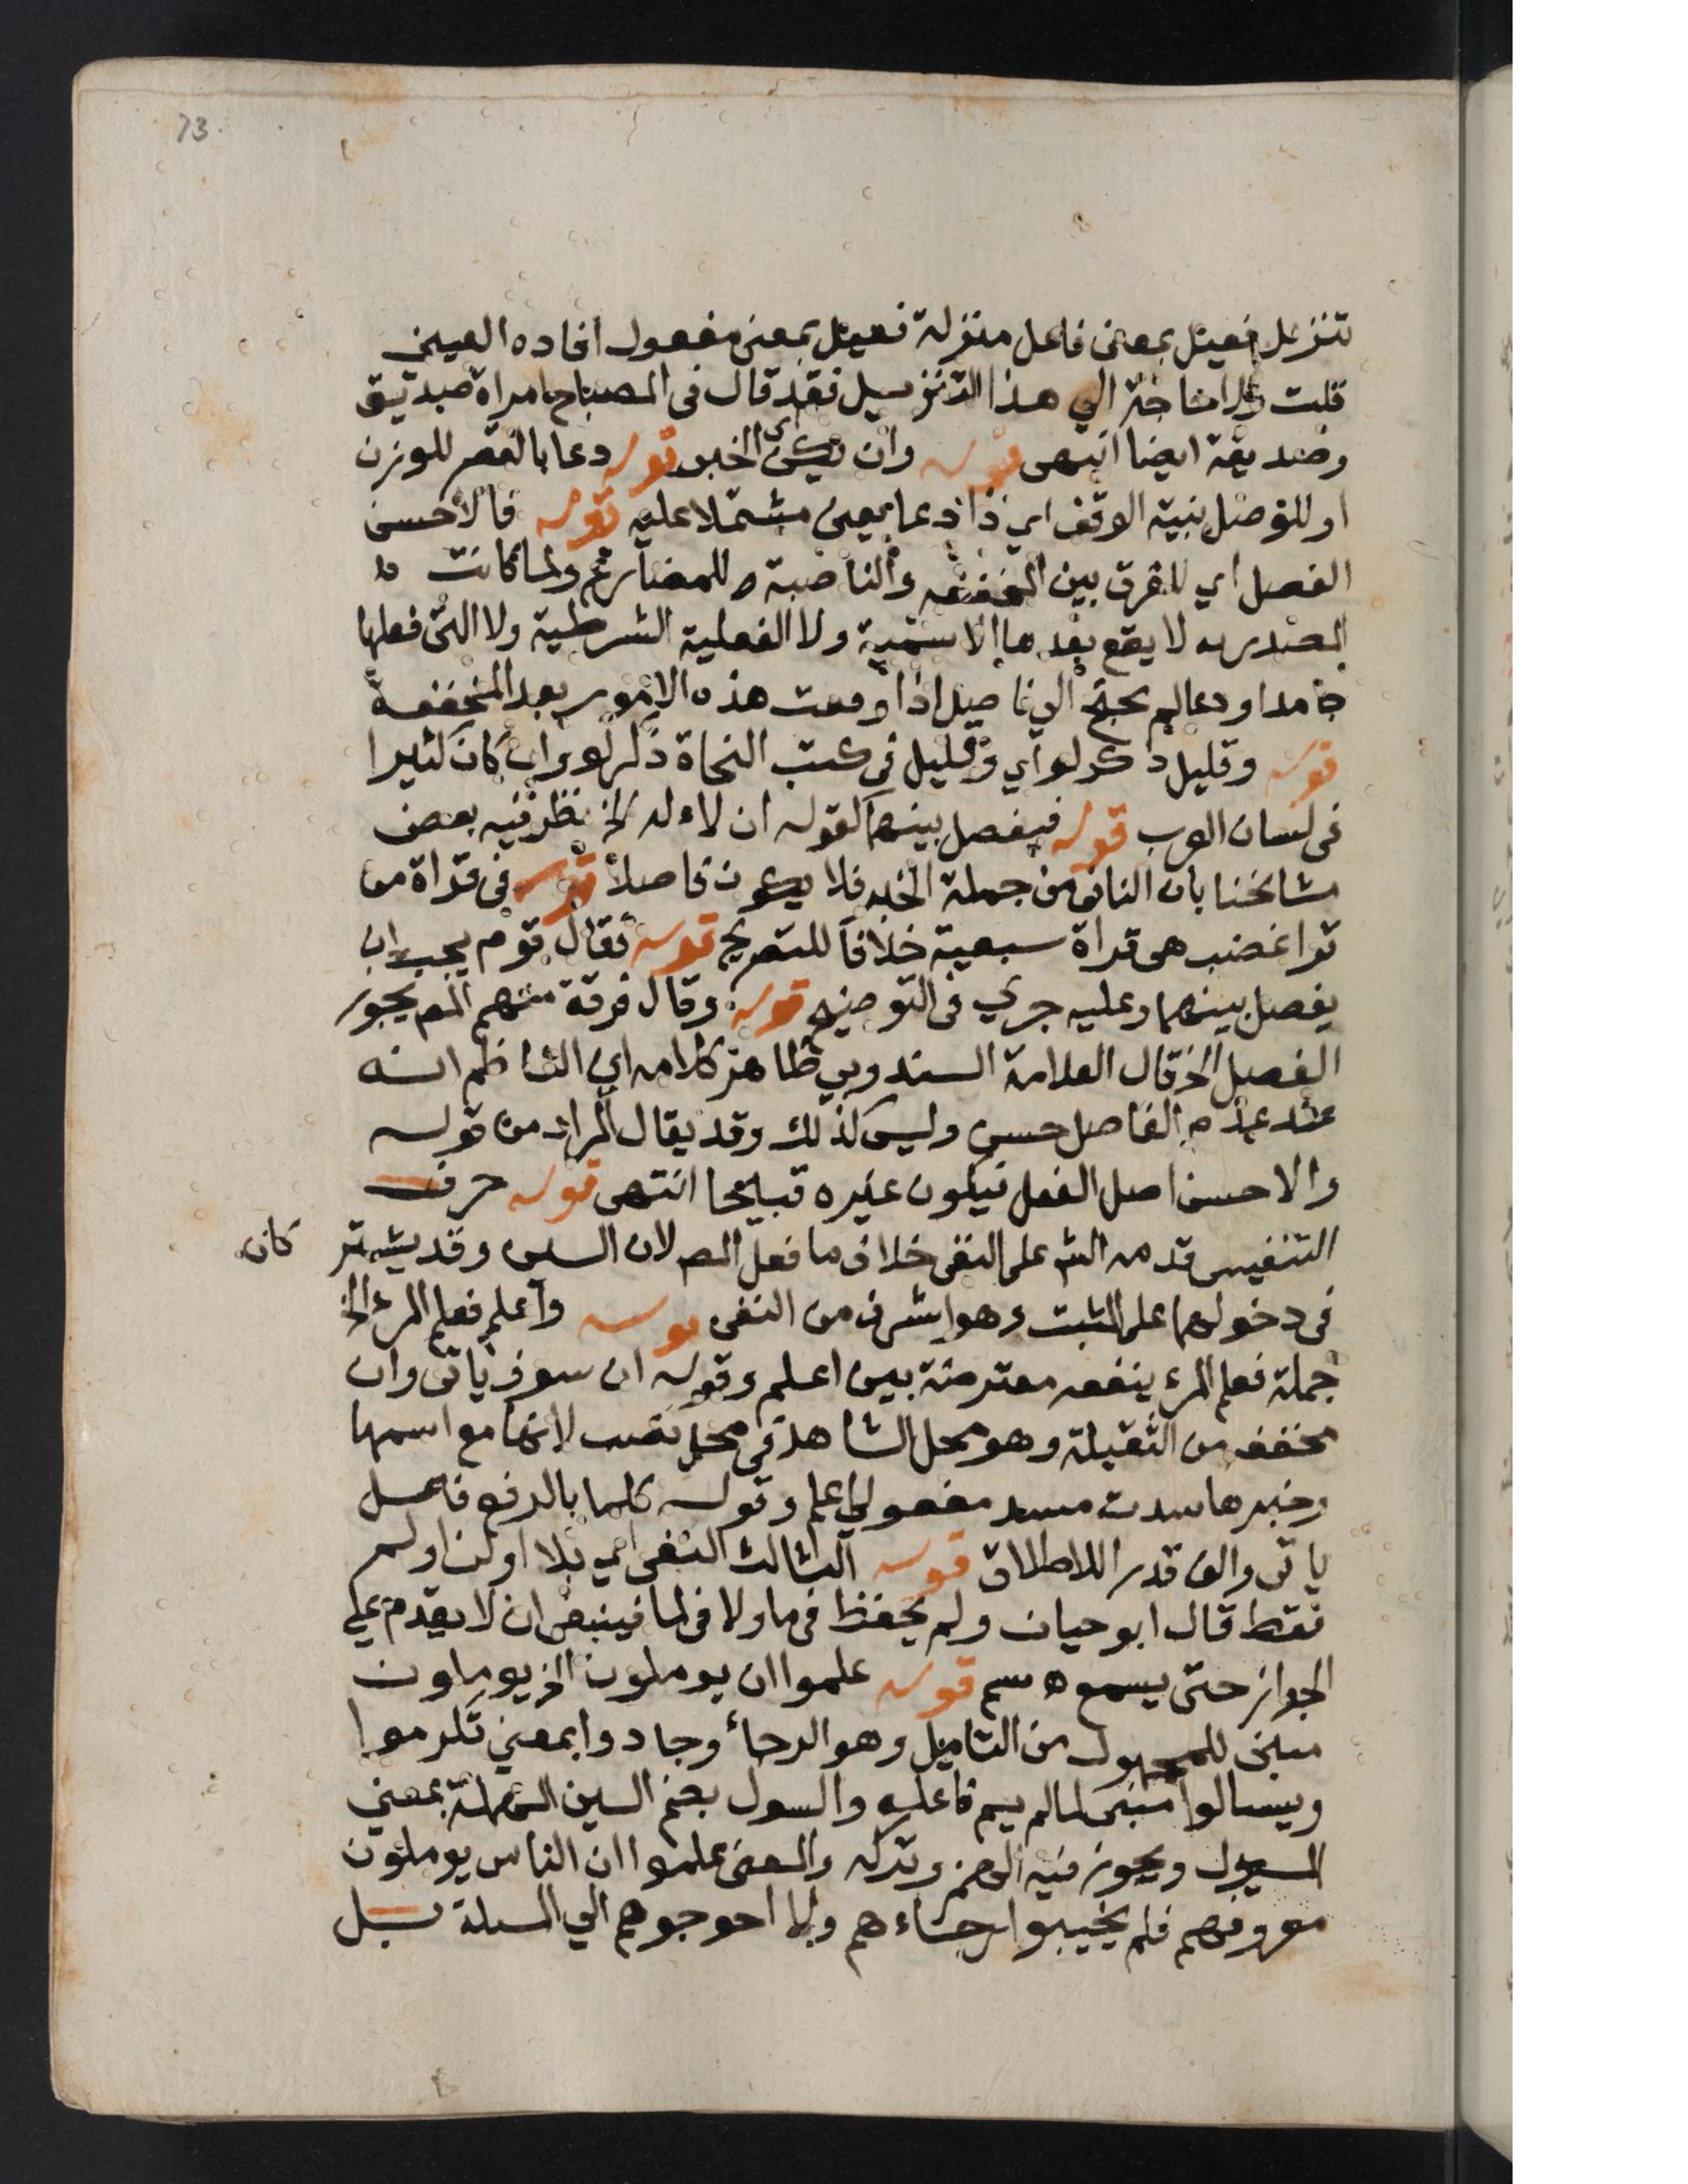 73
تنزيل فعيل بمعنى فاعل منزلة فعيل بمعنى مفعول افاده العيني
قلت ولا حاجة الي هذا التنزيل فقد قال في المصباح امراة صديق
وصديقة ايضا انتهى قوله وان يكن اي الخبر قوله دعا بالقصر للوزن
او للوصل بنية الوقف اي ذا دعا بمعنى مشتملا عليه قوله فالاحسن
الفصل اي للفرق بين المخففه والناصبة للمضارع ولما كانت
المصدريه لا يقع بعدها الاسمية ولا الفعلية الشرطية ولا التي فعلها
جامد او دعا لم يحتج الي فاصل اذا وقعت هذه الامور بعد المخففة
قوله وقليل ذكر لو اي وقليل في كتب النحاة ذكر لو وان كان كثيرا
في لسان العرب قوله فيفصل بينهما كقوله ان لا اله الخ نظر فيه بعض
مشايخنا بان النافي من جملة الخبر فلا يكون فاصلا قوله في قراة من
قرا غضب هي قراة سبعية خلافا للتصريح قوله فقال قوم يجب ان
يفصل بينهما وعليه جري في التوضيح قوله وقال فرقة منهم المص يجوز
الفصل الخ قال العلامة السندوبي ظاهر كلامه اي الناظم انه
عند عدم الفاصل حسن وليس كذلك وقد يقال المراد من قوله
والاحسن اصل الفعل فيكون غيره قبيحا انتهى قوله حرف
التنفيس قدمه الش على النفي خلاف ما فعل المص لان السين وقد يشتركان
في دخولهما على المثبت وهو اشرف من النفي قوله واعلم فعلم المرء الخ
جملة فعلم المرء ينفعه معترضة بين اعلم وقوله ان سوف ياتي وان
مخفف من الثقيلة وهو محل الشاهد في محل نصب لانها مع اسمها
وخبرها سدت مسد مفعولي اعلم وقوله كلما بالرفع فاعل
ياتي والف قدرا للاطلاق قوله الثالث النفي اي بلا او لن او لم
فقط قال ابو حيان ولم يحفظ في ما ولا في لما فينبغي ان لا يقدم علي
الجواز حتى يسمع ه سم قوله علموا ان يوملون الخ يوملون
مبني للمجهول من التاميل وهو الرجاء وجادوا بمعني تكرموا
ويسالوا مبني لما لم يسم فاعله والسول بضم السين المهملة بمعني
المسيول ويجوز فيه الهمز وتركه والمعنى علموا ان الناس يوملون
معروفهم فلم يخيبوا رجاءهم ولا احوجوهم الي المسلة بل